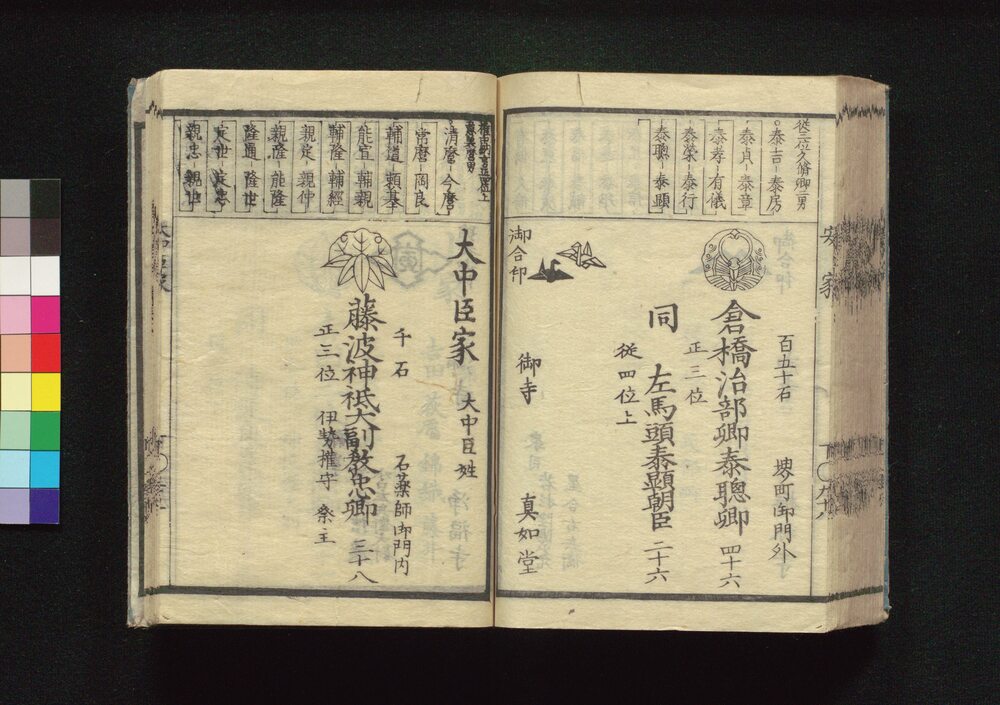 従三位久脩卿二男
泰吉－泰房
泰貞－泰章
泰孝－有儀
泰榮－泰行
泰聰－泰顯
安 家
百五十石 堺町御門外
倉橋治部卿泰聰卿 四十六
正三位
同 左馬頭泰顯朝臣 二十六
従四位上
御合印
御寺 真如堂
清麿－今麿
常麿－岡良
輔道－頼基
能宣－輔親
輔隆－輔經
親定－親仲
親隆－能隆
隆通－隆世
定世－定忠
親忠－親世
大中臣家 大中臣姓
千石 石薬師御門内
藤波神祇大副教忠卿 三十八
正三位 伊勢権守 祭主